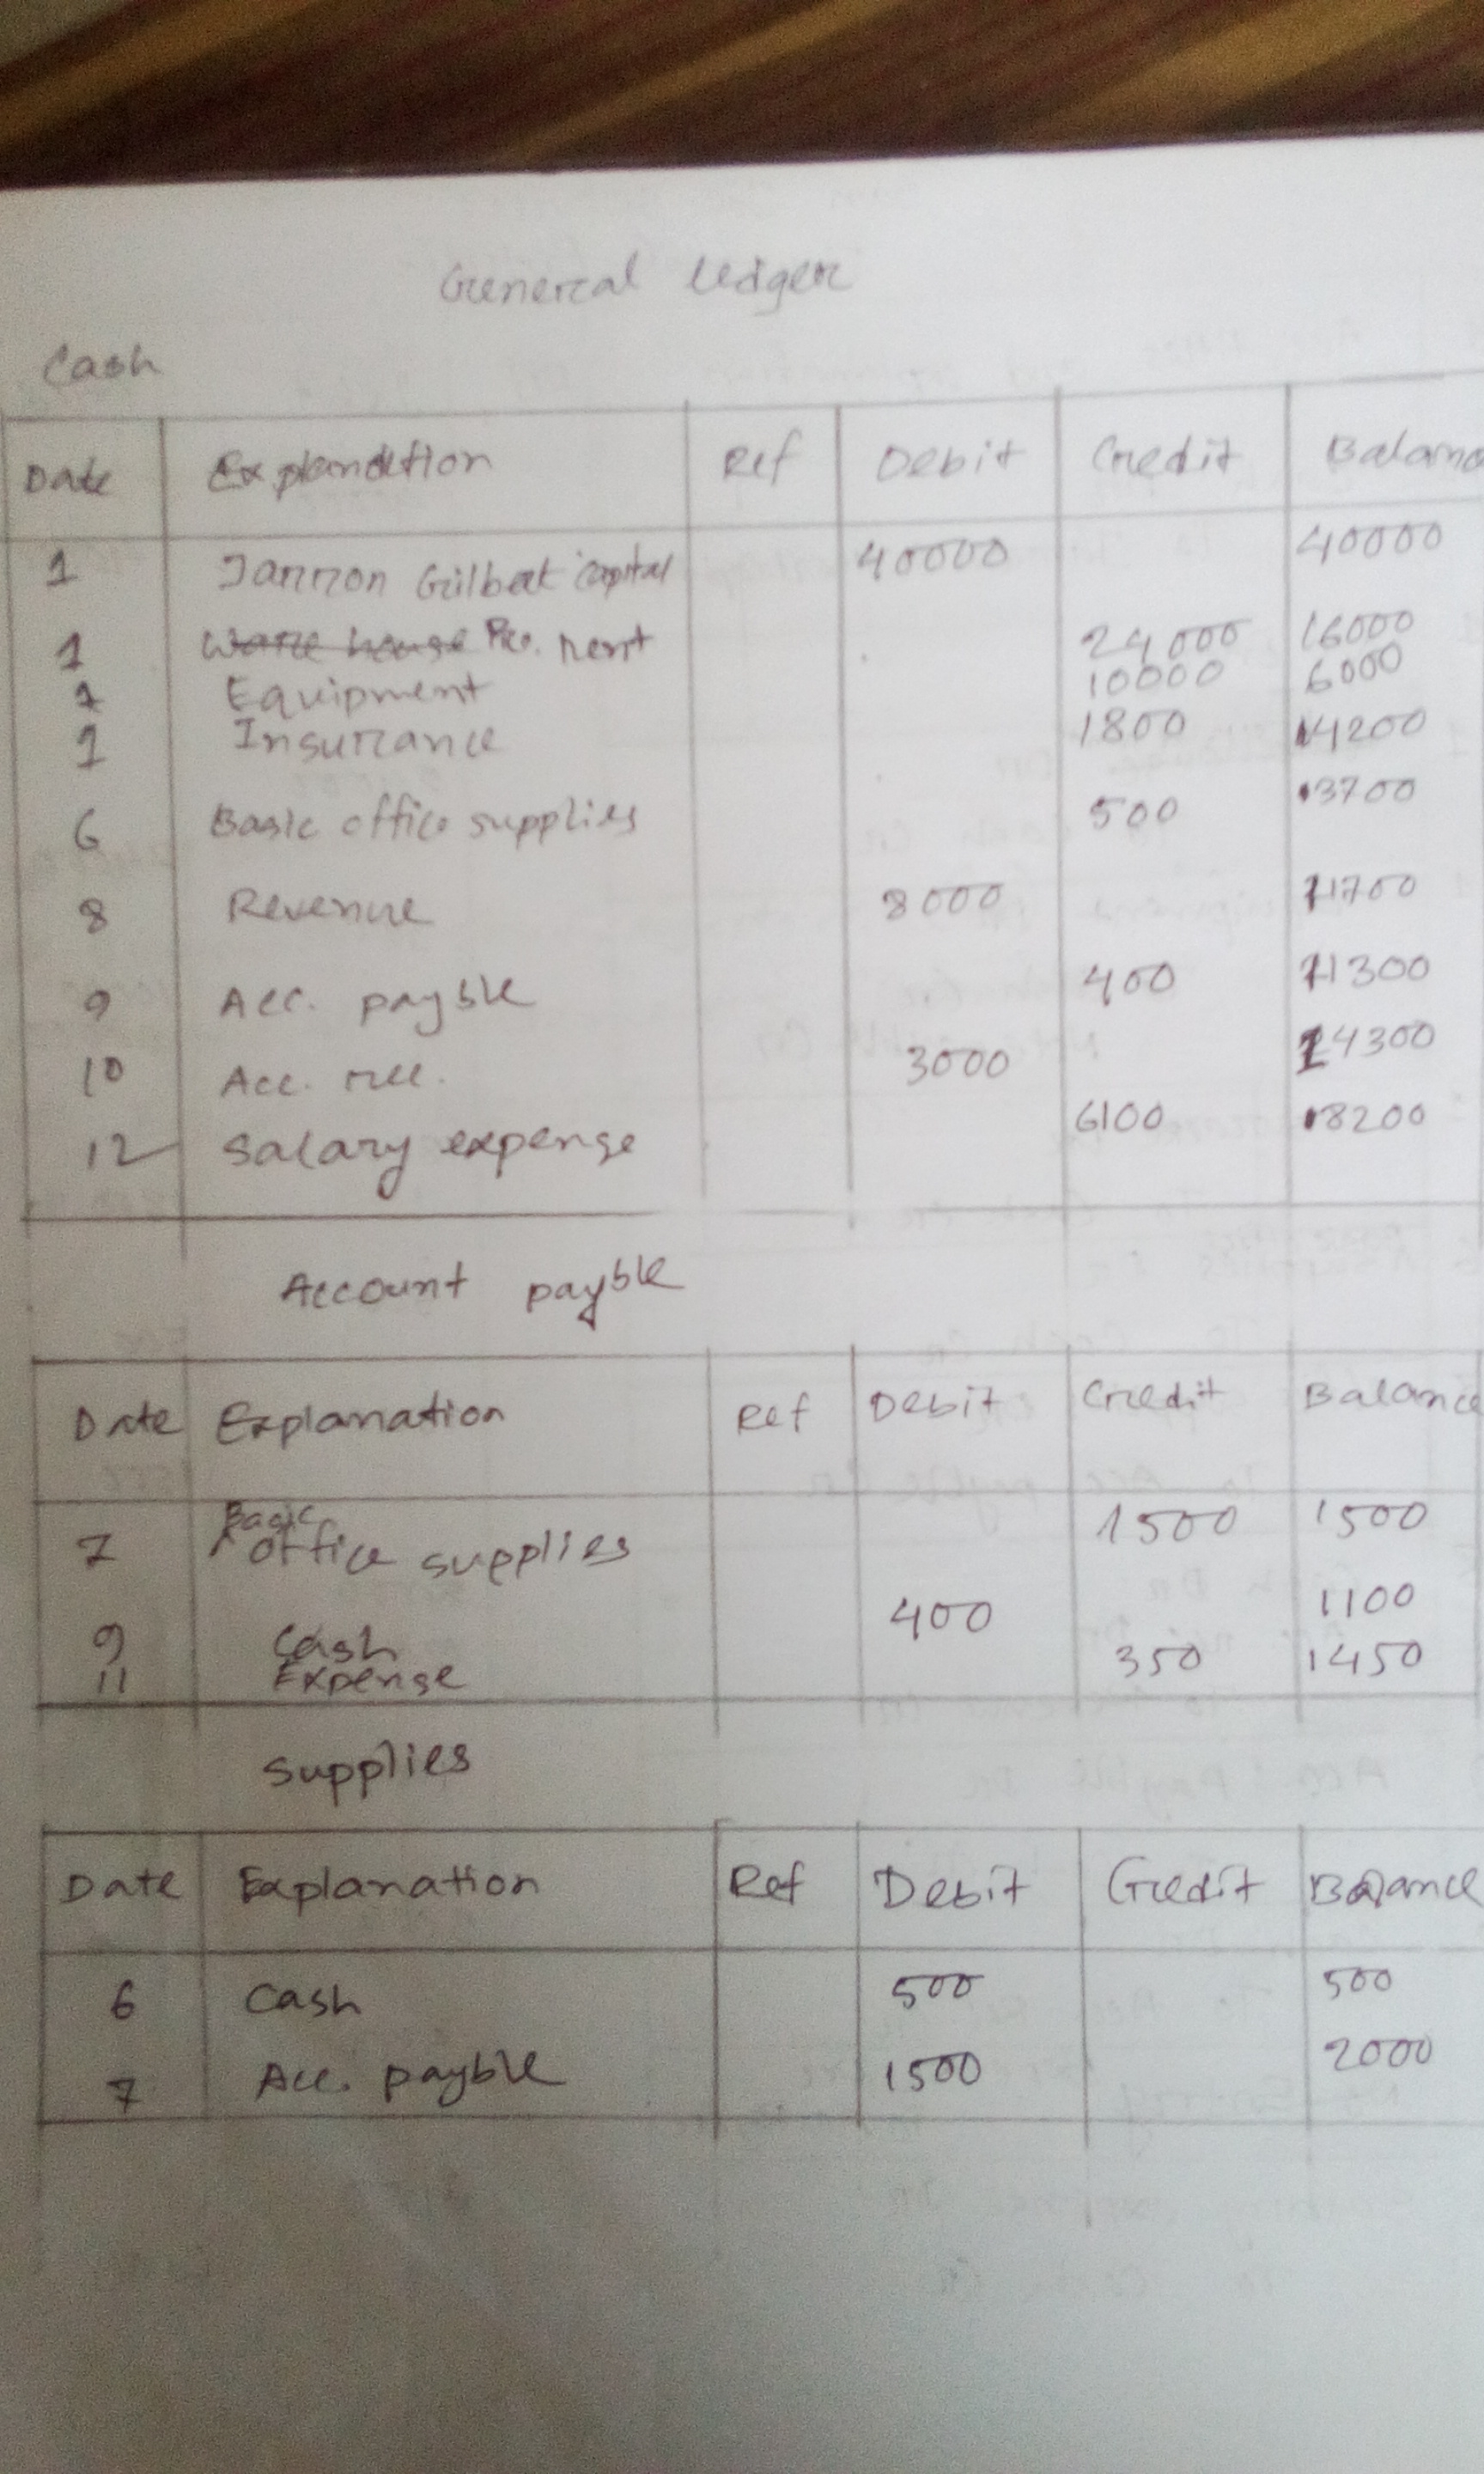 General ledger
Cash
Date Explandtion Ref Debit Credit Balance
1 Jannon Gilbert capital 40000 40000
1 Ware house Pre. rent 24000 16000
1 Equipment 10000 6000
1 Insurance 1800 4200
6 Basic office supplies 500 3700
8 Revenue 8000 11700
9 Acc. payble 400 11300
10 Acc. rec. 3000 14300
12 Salary expense 6100 8200
Account payble
Date Explanation Ref Debit Credit Balance
7 Basic office supplies 1500 1500
9 Cash 400 1100
11 Expense 350 1450
Supplies
Date Explanation Ref Debit Credit Balance
6 Cash 500 500
7 Acc. payble 1500 2000